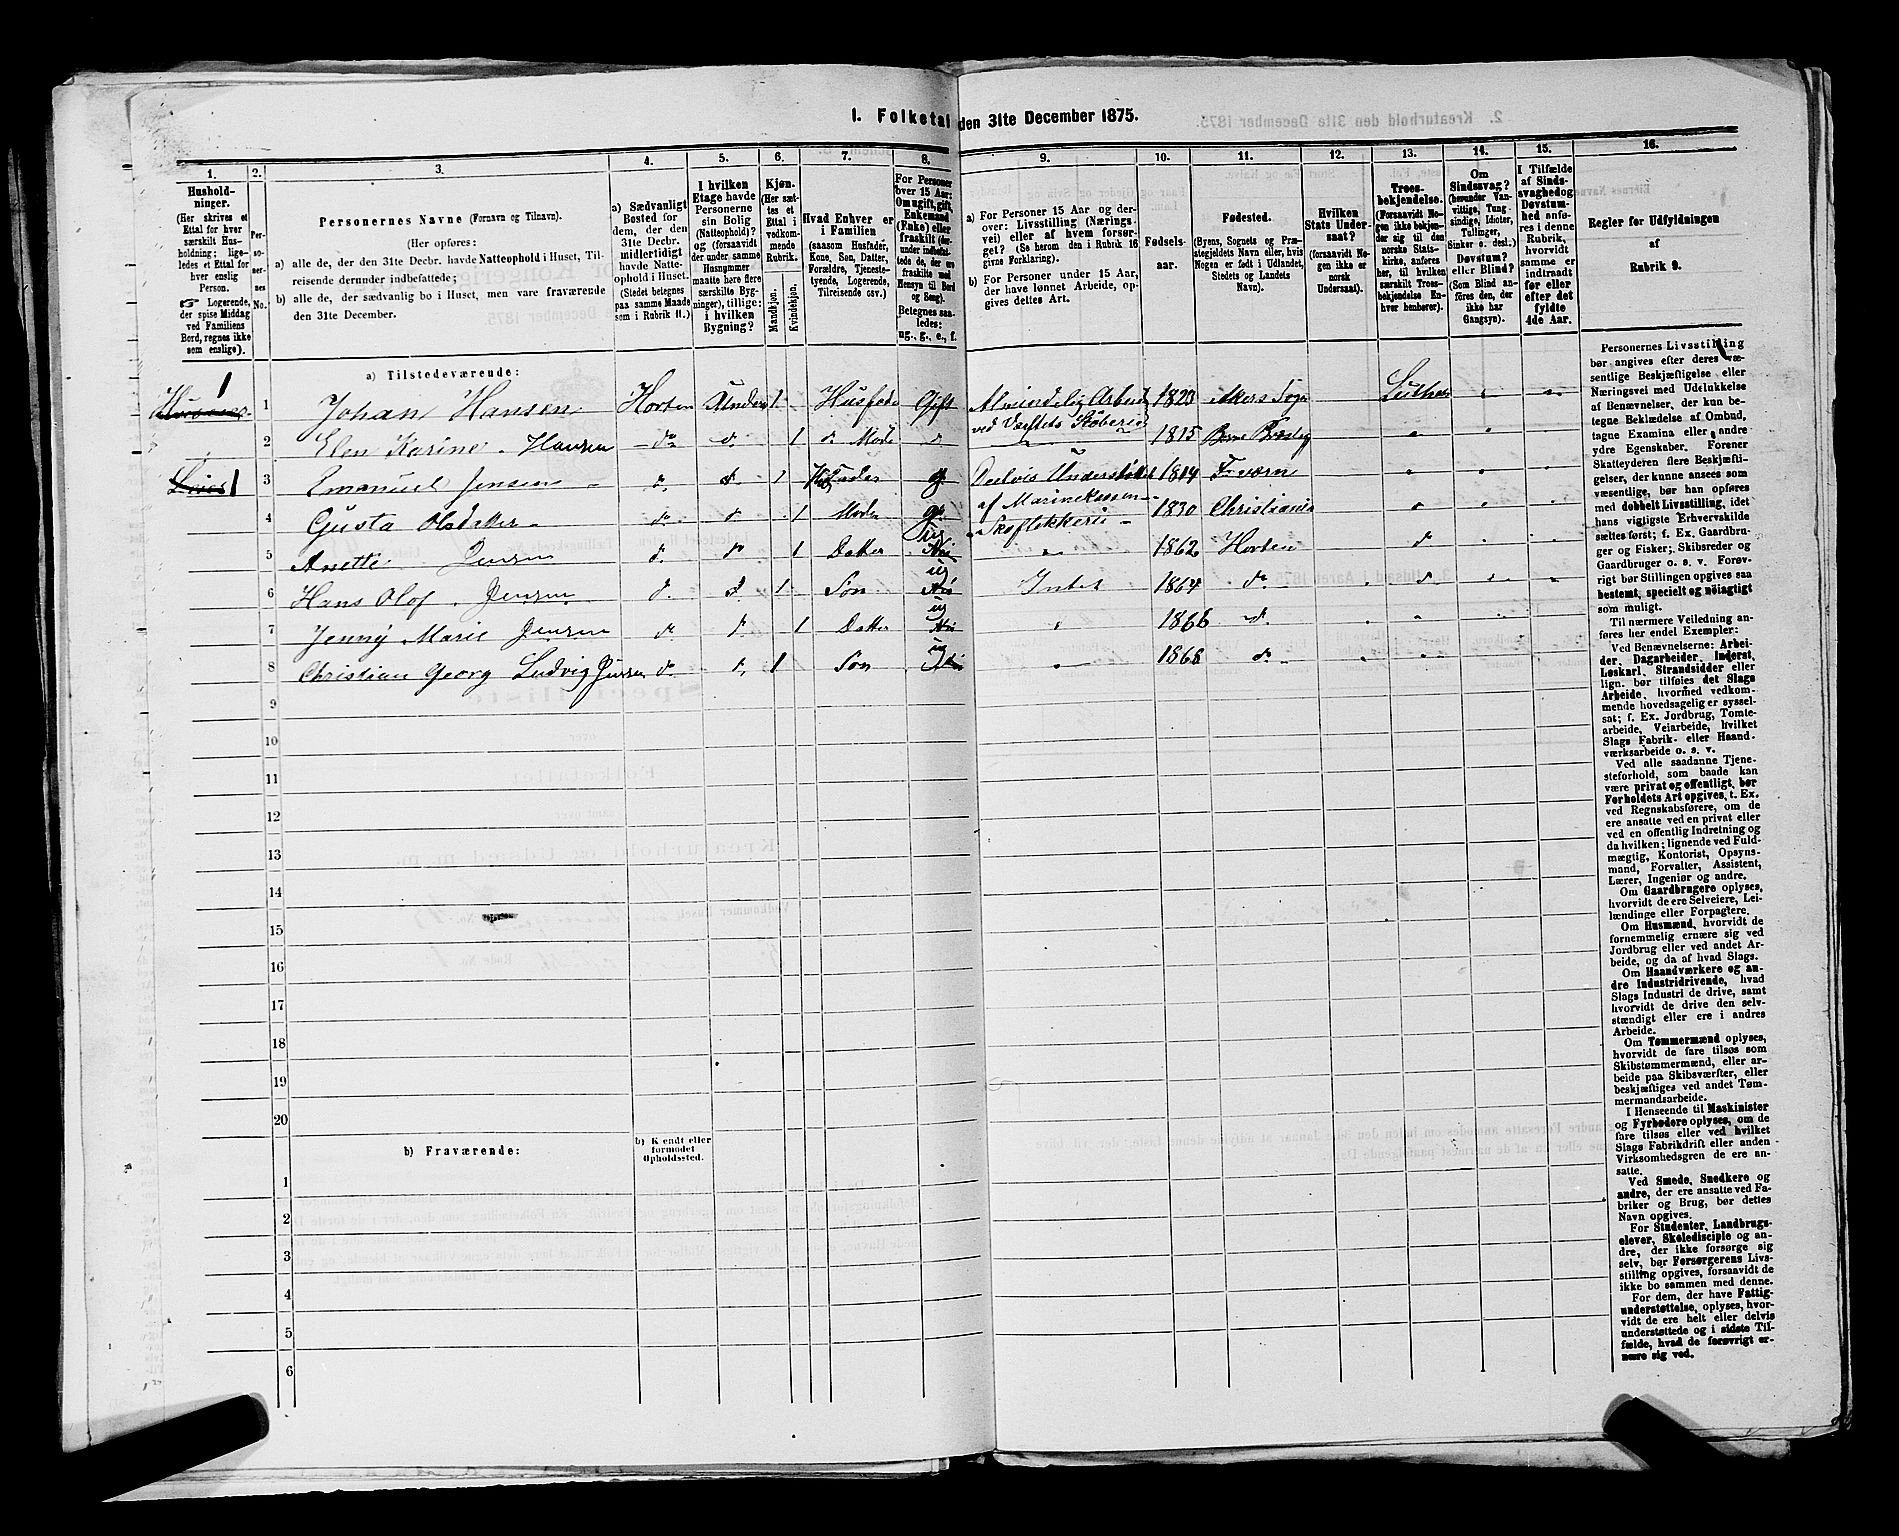 1. Folketal den 31te December 1875.
1.
Hushold-
ninger.
(Her skrives et
Ettal for hver
særskilt Hus-
holdning; lige-
ledes et Ettal for
enslig
Person.
☞ Logerende,
der spise Middag
ved Familiens
Bord, regnes ikke
som enslige).
2.
Per-
so-
ner-
nes
No.
3.
Personernes Navne (Fornavn og Tilnavn).
(Her opføres:
a) alle de, der den 31te Decbr. havde Natteophold i Huset, Til-
reisende derunder indbefattede;
b) alle de, der sædvanlig bo i Huset, men vare fraværende
den 31te December.
4.
a) Sædvanligt
Bosted for
dem, der den
31te Decbr.
midlertidigt
havde Natte-
ophold i Huset.
(Stedet betegnes
paa samme Maade
som i Rubrik 11.)
5.
I hvilken
Etage havde
Personerne
sin Bolig
(Natteophold)?
og (forsaavidt
der under samme
Husnummer
maatte høre flere
særskilte Byg-
ninger), tillige:
i hvilken
Bygning?
6.
Kjøn.
(Her sæt-
tes et
Ettal i
vedkom-
mende
Rubrik.
Mandkjøn.
Kvindekjøn.
7.
Hvad Enhver er
i Familien
(saasom Husfader,
Kone, Søn, Datter,
Forældre, Tjeneste-
tyende, Logerende,
Tilreisende osv.)
8.
For Personer
over 15 Aar:
Om ugift, gift,
Enkemand
(Enke) eller
fraskilt (der-
under indbefat-
tede de, der ere
fraskilte med
Hensyn til Bord
og Seng).
Betegnes saa-
ledes:
ug., g., e., f.
9.
a) For Personer 15 Aar og der-
over: Livsstilling (Nærings-
vei) eller af hvem forsør-
get? (Se herom den i Rubrik 16
givne Forklaring).
b) For Personer under 15 Aar,
der have lønnet Arbeide, op-
gives dettes Art.
10.
Fødsels-
aar.
11.
Fødested.
(Byens, Sognets og Præ-
stegjeldets Navn eller, hvis
Nogen er født i Udlandet,
Stedets og Landets
Navn).
12.
Hvilken
Stats Under-
saat?
(forsaavidt No-
gen ikke er
norsk
Undersaat).
13.
Troes-
bekjendelse.
(Forsaavidt No-
gen ikke bekjen-
der sig til den
norske Stats-
kirke, anføres
her, til hvilken
særskilt Troes-
bekjendelse En-
hver henhører).
14.
Om
Sindssvag?
(herunder Van-
vittige, Tung-
sindige, Idioter,
Tullinger,
Sinker o. desl.)
Døvstum?
eller Blind?
(Som Blind an-
føres den, der
ikke har
Gangsyn).
15.
I Tilfælde
af Sinds-
svaghed og
Døvstum-
hed anfø-
res i denne
Rubrik,
hvorvidt
samme er
indtraadt
før eller
efter det
fyldte
4de Aar.
16.
Regler for Udfyldningen
af
Rubrik 9.
a) Tilstedeværende:
1 1 Johan Hansen Horten 1 Husfader Gift Almindelig Arbeid 1823 Akers Sogn Luther
ved Værftets Støberie
2 Elen Karine Hansen do d 1 d Moder d 1815
1 3 Emanuel Jensen d. d. 1 Husfader g. Deelvis Understøttet 1814 F. værn
af Marinekassen
4 Gusta d d 1 Moder g. 1830 Christiania
Skoflikkerie
5 Anette Jensen d. d 1 Datter ug 1862 Horten d
6 Hans Olof Jensen d. d. 1 Søn ug Intet 1864 do
7 Jenny Marie Jensen do d. 1 Datter ug 1866 d.
8 Christian Georg Ludvig Jensen do d. 1 Søn ug 1868 d.
9
10
11
12
13
14
15
16
17
18
19
20
b) Fraværende:
b) Kjendt eller
formodet
Opholdssted.
1
2
3
4
5
6
Personernes Livsstilling
bør angives efter deres væ-
sentlige Beskjæftigelse eller
Næringsvei med Udelukkelse
af Benævnelser, der kun be-
tegne Beklædelse af Ombud,
tagne Examina eller andre
ydre Egenskaber. Forener
Skatteyderen flere Beskjæfti-
gelser, der kunne ansees som
væsentlige, bør han opføres
med dobbelt Livsstilling, idet
hans vigtigste Erhvervskilde
sættes først; f. Ex. Gaardbru-
ger og Fisker; Skibsreder og
Gaardbruger o. s. v. Forøv-
rigt bør Stillingen opgives saa
bestemt, specielt og nøiagtigt
som muligt.
Til nærmere Veiledning an-
føres her endel Exempler:
Ved Benævnelserne: Arbei-
der, Dagarbeider, Inderst,
Løskarl, Strandsidder eller
lign. bør tilføies det Slags
Arbeide, hvormed vedkom-
mende hovedsagelig er syssel-
sat; f. Ex. Jordbrug, Tomte-
arbeide, Veiarbeide, hvilket
Slags Fabrik- eller Haand-
værksarbeide o. s. v.
Ved alle saadanne Tjene-
steforhold, som baade kan
være privat og offentligt, bør
Forholdets Art opgives, t. Ex.
ved Regnskabsførere, om de
ere ansatte ved en privat eller
ved en offentlig Indretning og
da hvilken; lignende ved Fuld-
mægtig, Kontorist, Opsyns-
mand, Forvalter, Assistent,
Lærer, Ingeniør og andre.
Om Gaardbrugere oplyses,
hvorvidt de ere Selveiere, Lei-
lændinge eller Forpagtere.
Om Husmænd, hvorvidt de
fornemmelig ernære sig ved
Jordbrug eller ved andet Ar-
beide, og da af hvad Slags.
Om Haandværkere og an-
dre Industridrivende, hvad
Slags Industri de drive, samt
hvorvidt de drive den selv-
stændigt eller ere i andres
Arbeide.
Om Tømmermænd oplyses,
hvorvidt de fare tilsøs som
Skibstømmermænd, eller ar-
beide paa Skibsværfter, eller
beskjæftiges ved andet Tøm-
mermandsarbeide.
I Henseende til Maskinister
og Fyrbødere oplyses, om de
fare tilsøs eller ved hvilket
Slags Fabrikdrift eller anden
Virksomhedsgren de ere an-
satte.
Ved Smede, Snedkere og
andre, der ere ansatte ved Fa-
briker og Brug, bør dettes
Navn opgives.
For Studenter, Landbrugs-
elever, Skoledisciple og an-
dre, der ikke forsørge sig
selv, bør Forsørgerens Livs-
stilling opgives, forsaavidt de
ikke bo sammen med denne.
For dem, der have Fattig-
understøttelse, oplyses, hvor-
vidt de ere helt eller delvis
understøttede og i sidste Til-
fælde, hvad de forøvrigt er-
nære sig ved.